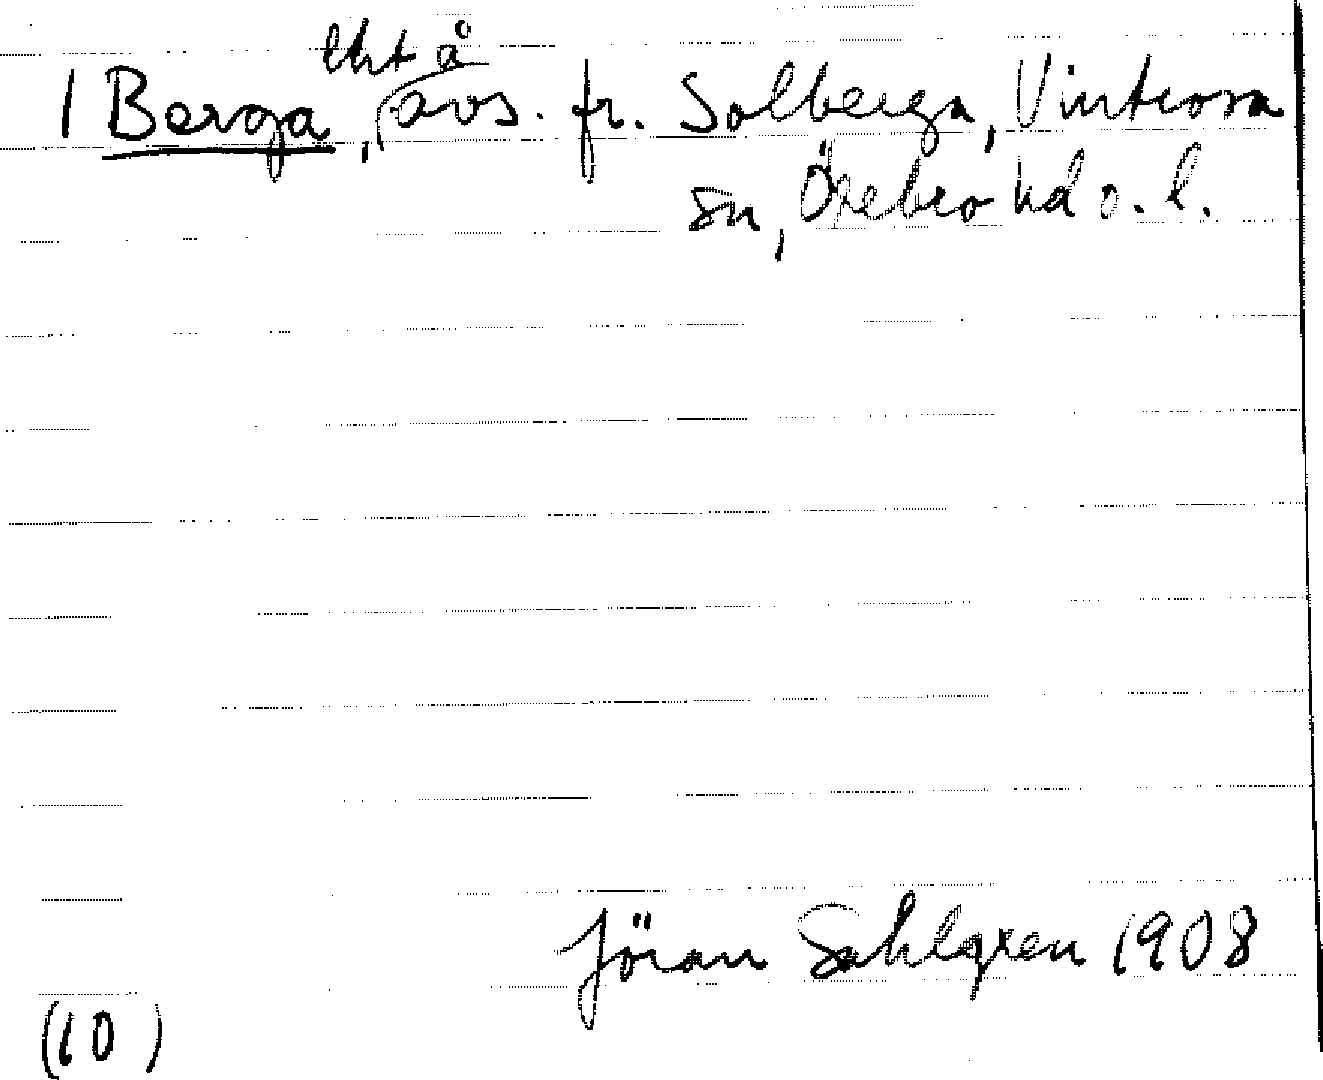 lht å
1 Berga, avs. fr. Solberga, Vintrosa
sn, Örebro hd o. l.
Jöran Sahlgren 1908
(10)